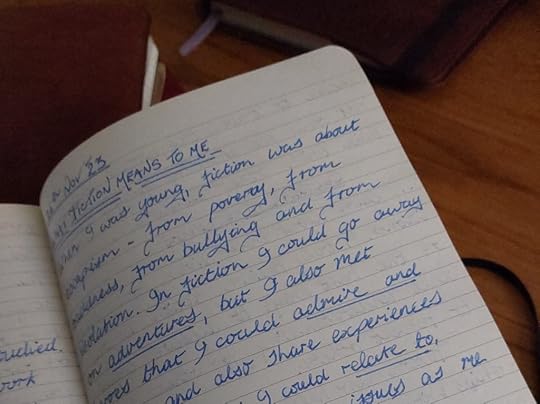 Nov 23
FICTION MEANS TO ME
I was young, fiction was about
escapism - from poverty, from
from bullying and from
isolation. In fiction I could go away
on adventures, but I also met
that I could admire and
and also share experiences
I could relate to,
issues as me
studied.
work